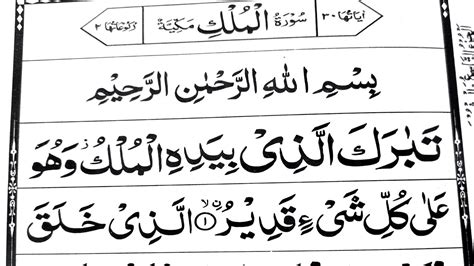 اٰيَاتُهَا ٣٠ سُوْرَةُ الْمُلْكِ مَكِّيَّةٌ رُكُوْعَاتُهَا ٢
بِسْمِ اللهِ الرَّحْمٰنِ الرَّحِيْمِ
تَبٰرَكَ الَّذِىْ بِيَدِهِ الْمُلْكُ ز وَهُوَ
عَلٰى كُلِّ شَىْءٍ قَدِيْرُ ۙ﴿١﴾ ۨالَّذِىْ خَلَقَ